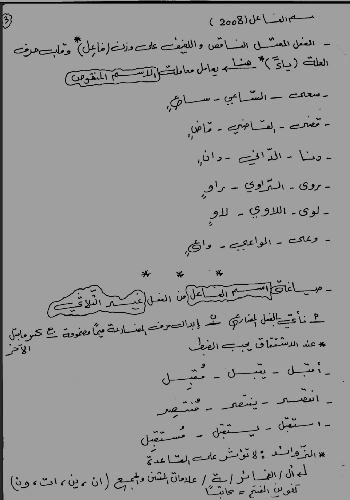 ③
اسم الفاعل (2008)
- الفعل المعتل الناقص واللفيف على وزن (فاعل)* وقلب حرف
العلة (ياءً)* هنا يعامل معاملة (الاسم المنقوص)
- سعى - السّاعي - ساعٍ
- قضى - القاضي - قاضٍ
- دنا - الدّاني - دانٍ
- روى - الرّاوي - راوٍ
- لوى - اللاوي - لاوٍ
- وعى - الواعي - واعٍ
* * *
- صياغة اسم الفاعل من الفعل غير الثلاثي
نأتي بالفعل المضارع إبدال حرف المضارعة ميمًا مضمومة كسر ما قبل
الآخر
* عند الاشتقاق يجب الضبط
- أقبل - يقبل - مُقبِل
- انتصر - ينتصر - مُنتصِر
- استقبل - يستقبل - مُستقبِل
* الزوائد: لا تؤثر على القاعدة
أل / الضمائر / ة / علامات المثنى والجمع (ان، ين، ات، ون)
تنوين الفتح